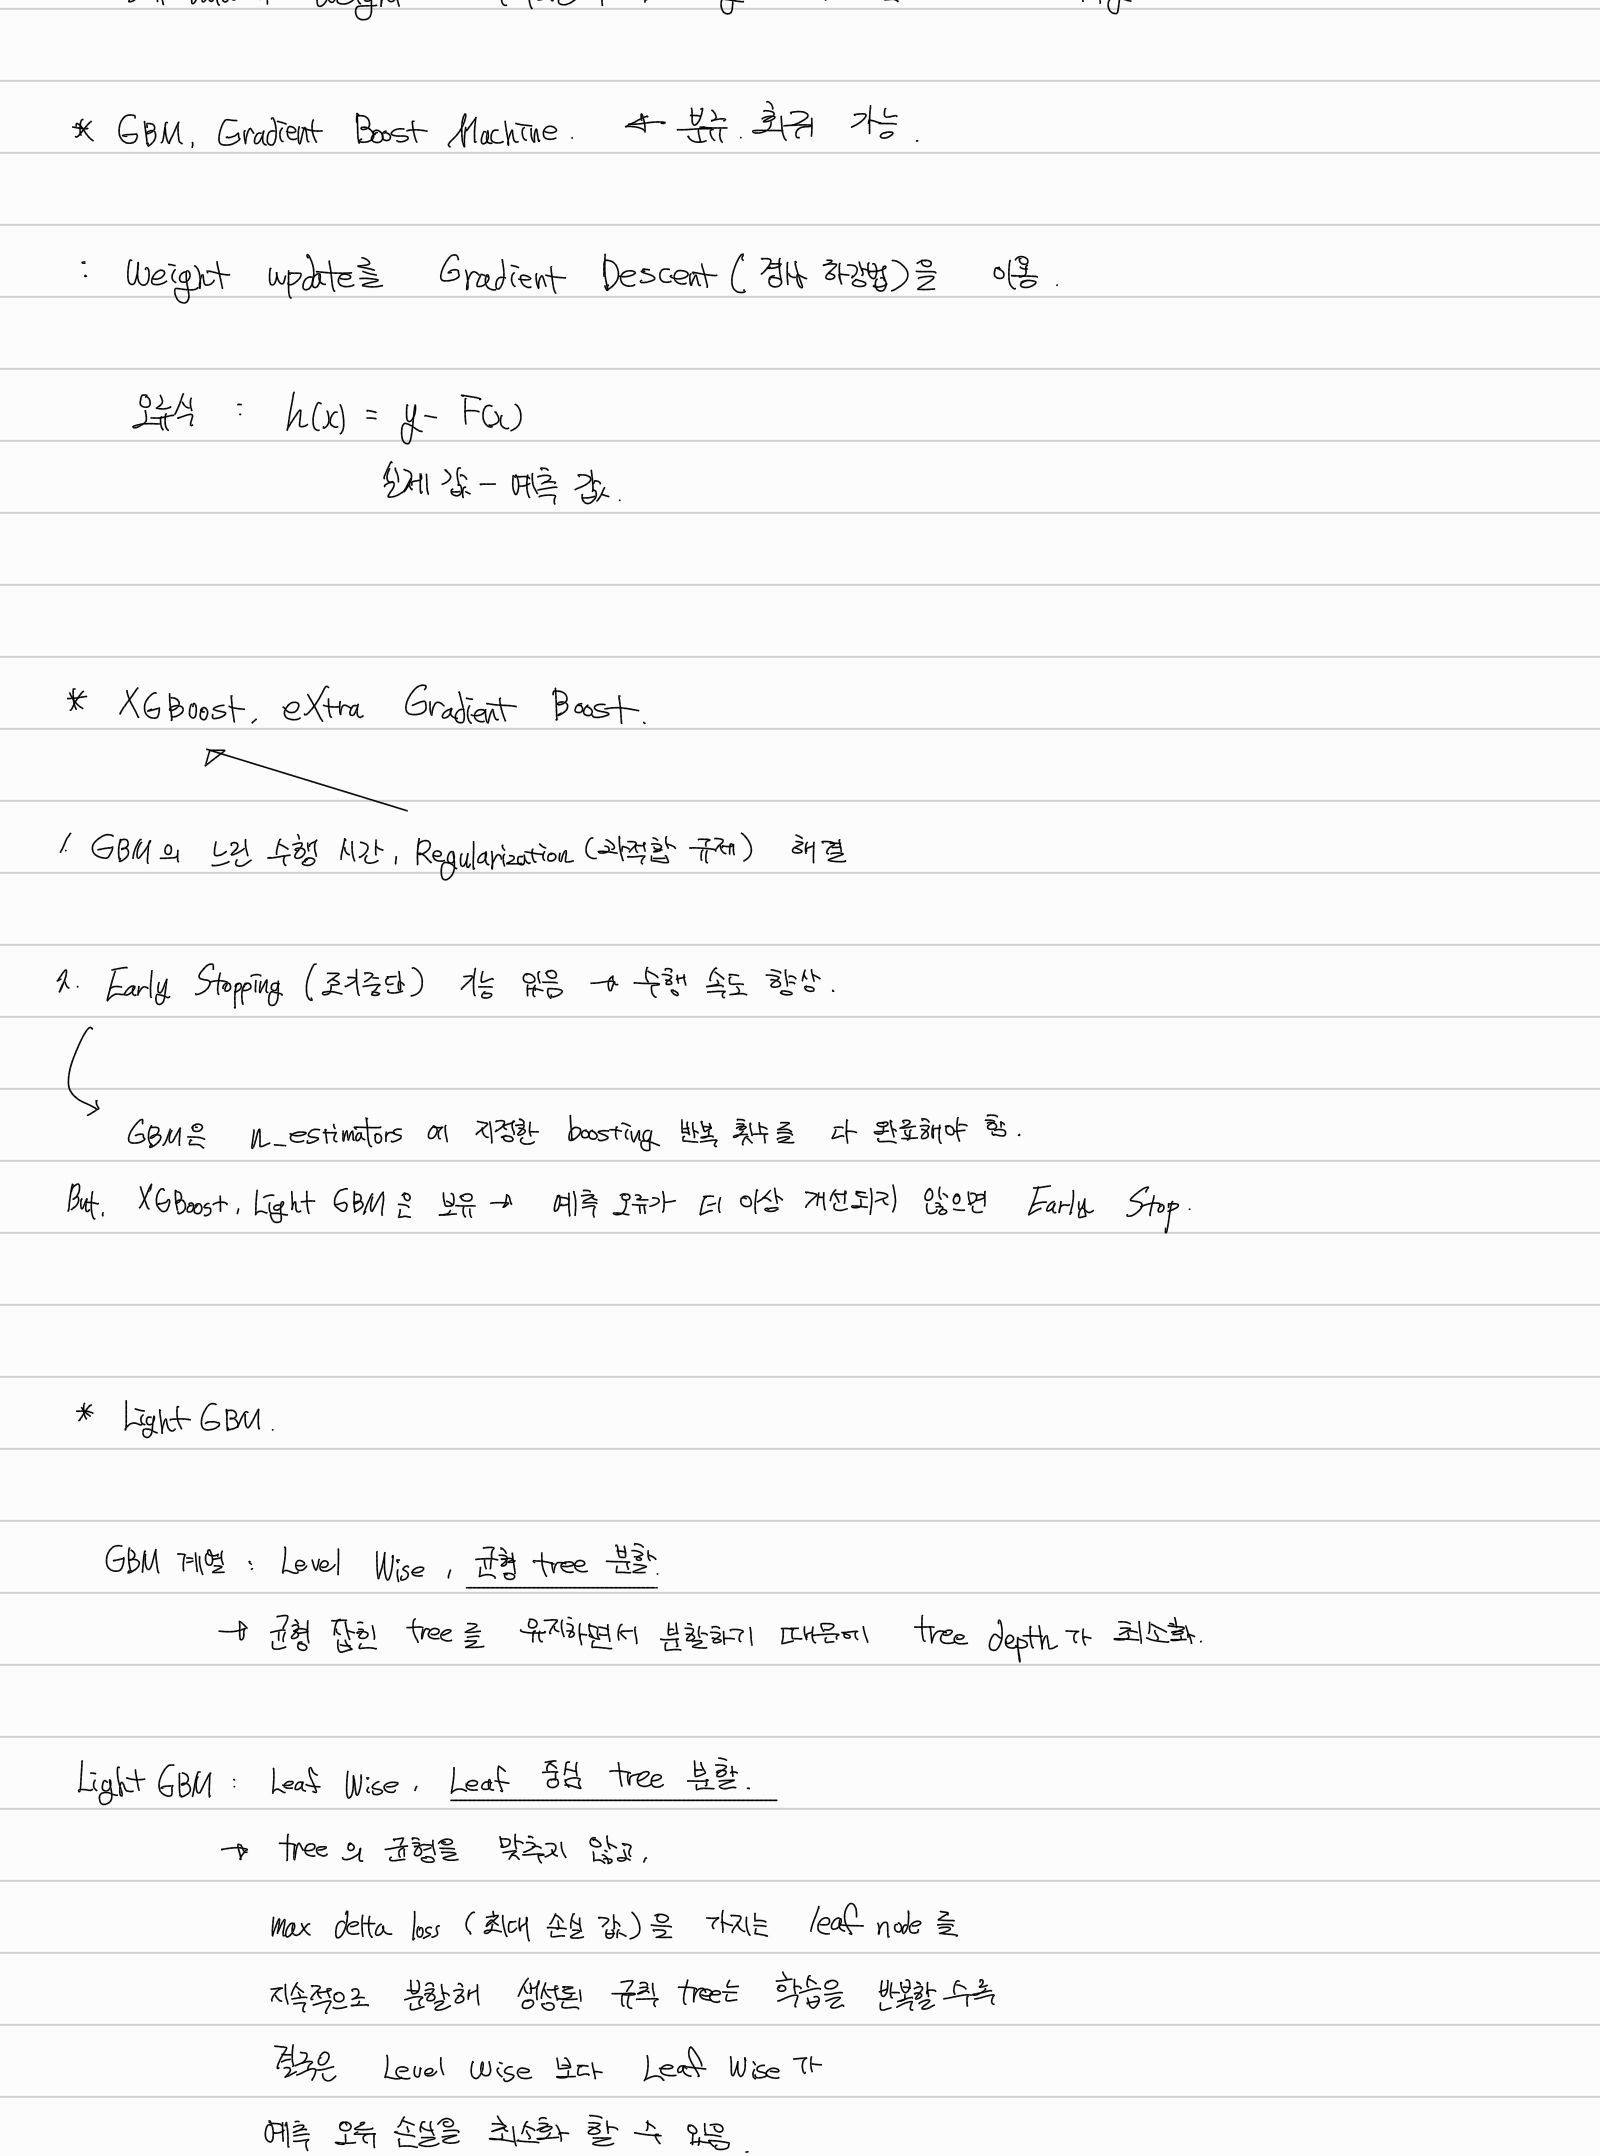 weight
* GBM, Gradient Boost Machine. ← 분류. 회귀 가능.
: Weight update를 Gradient Descent (경사 하강법)을 이용.
오류식 : h(x) = y - F(x)
실제 값 - 예측 값.
* XGBoost, eXtra Gradient Boost.
1. GBM의 느린 수행 시간, Regularization (과적합 규제) 해결
2. Early Stopping (조기중단) 기능 있음 → 수행 속도 향상.
GBM은 n_estimators 에 지정한 boosting 반복 횟수를 다 완료해야 함.
But, XGBoost, Light GBM은 보유 → 예측 오류가 더 이상 개선되지 않으면 Early Stop.
* Light GBM.
GBM 계열 : Level Wise, 균형 tree 분할.
→ 균형 잡힌 tree를 유지하면서 분할하기 때문에 tree depth가 최소화.
Light GBM : Leaf Wise, Leaf 중심 tree 분할.
→ tree의 균형을 맞추지 않고,
max delta loss (최대 손실 값)을 가지는 leaf node를
지속적으로 분할해 생성된 규칙 tree는 학습을 반복할 수록
결국은 Level Wise 보다 Leaf Wise가
예측 오류 손실을 최소화 할 수 있음.